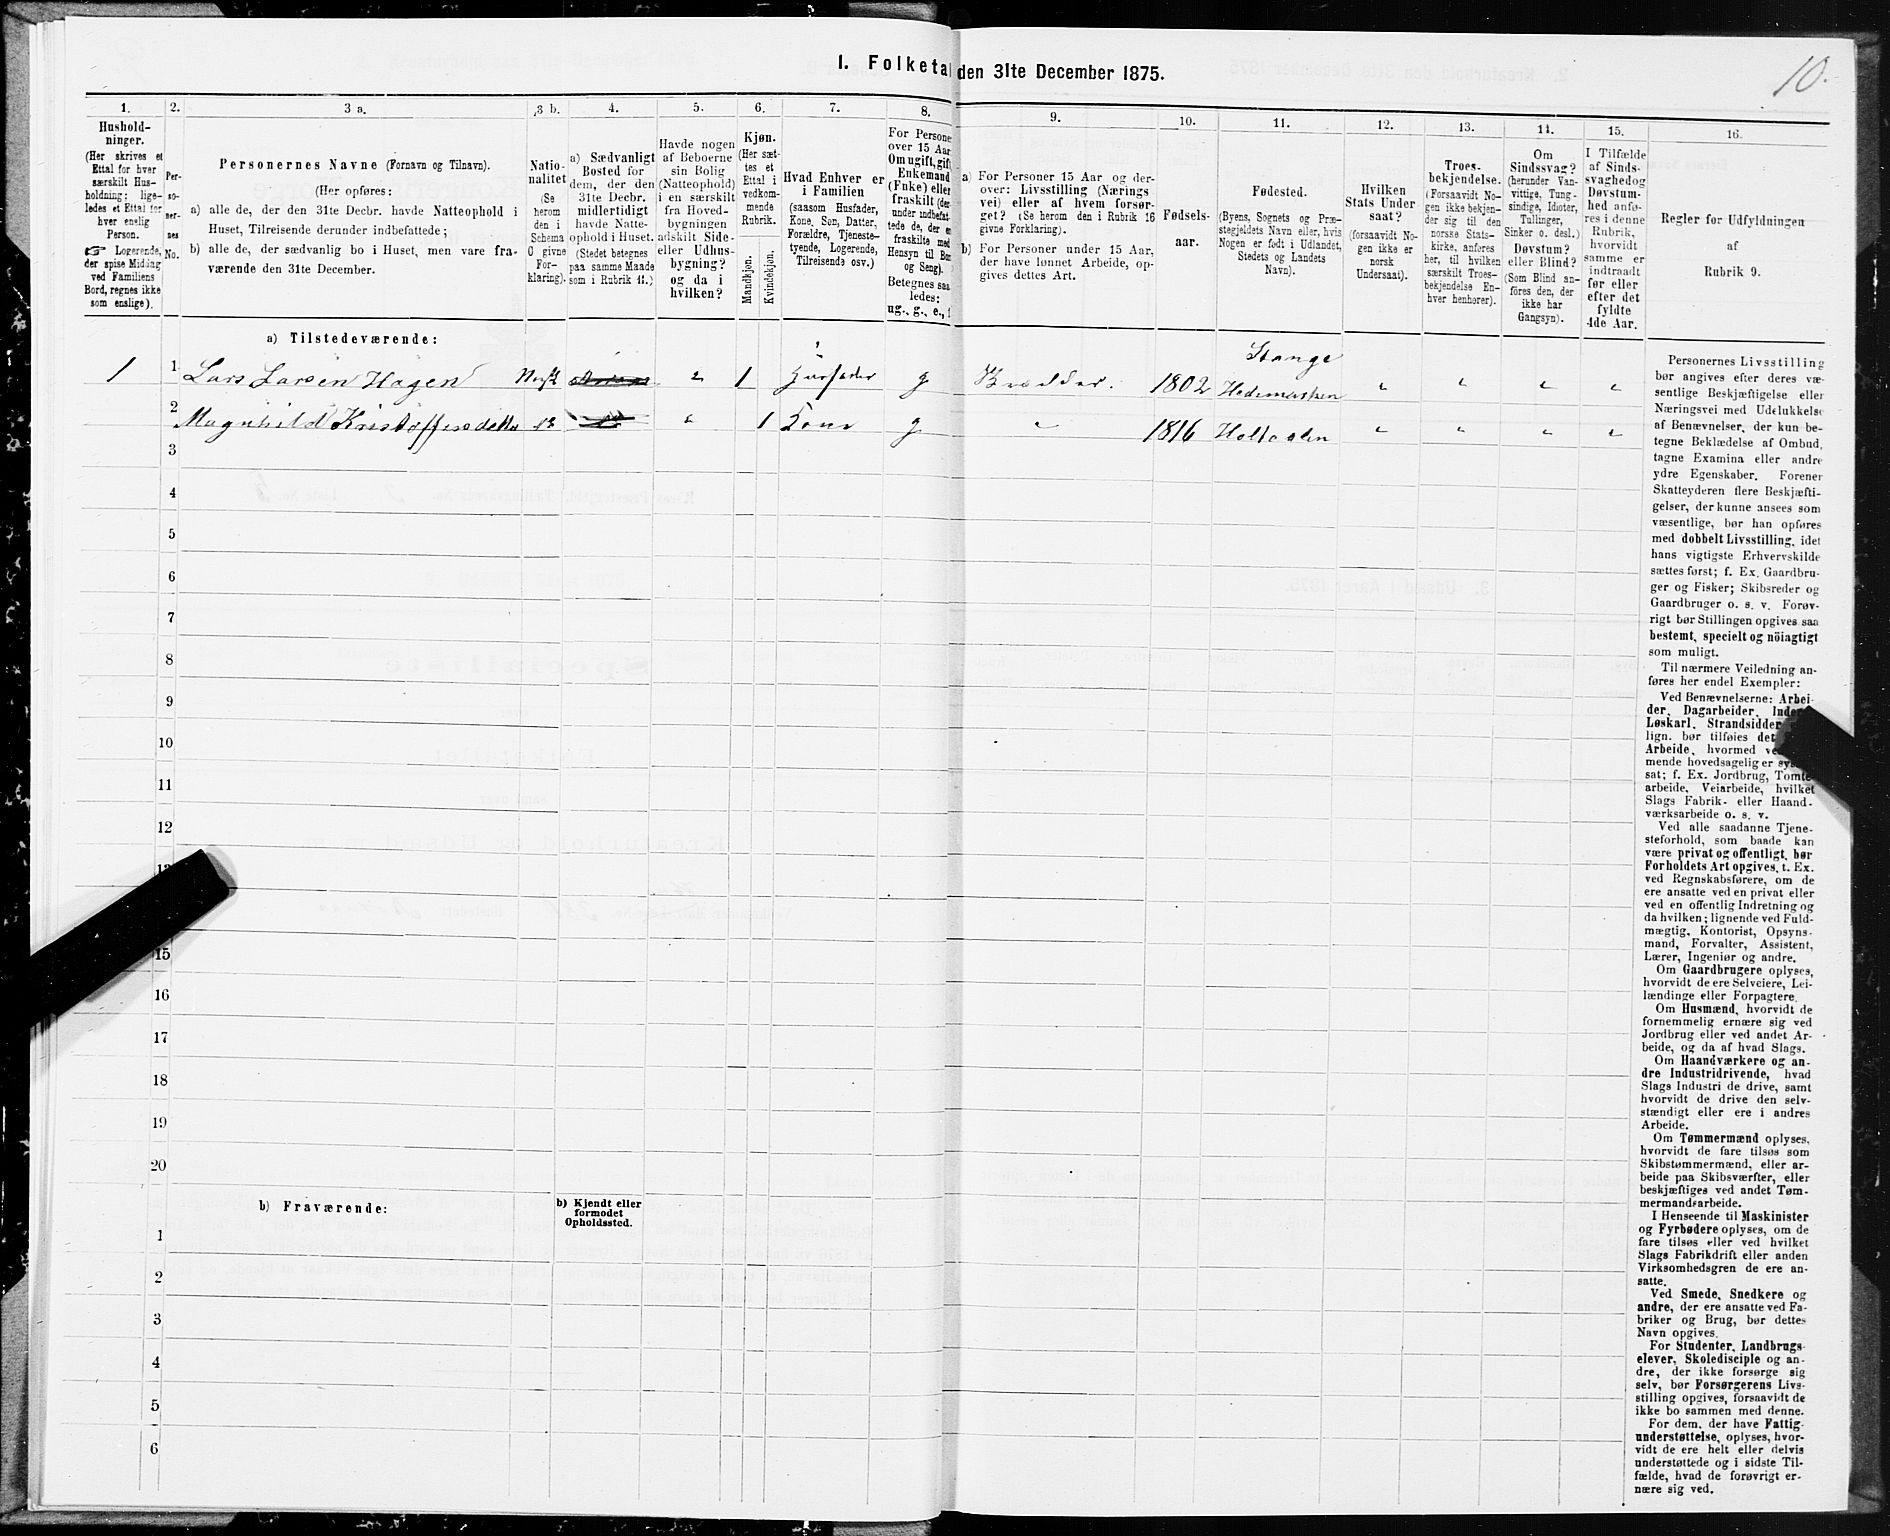 1. Folketal den 31te December 1875.
10.
1. 2. 3 a. 3 b. 4. 5. 6. 7. 8. 9. 10. 11. 12. 13. 14. 15. 16.
Hushold-
ninger.
(Her skrives et
Ettal for hver
særskilt Hus-
holdning; lige-
ledes et Ettal for
hver enslig
Person.
☞ Logerende,
der spise Middag
ved Familiens
Bord, regnes ikke
som enslige).
Per-
so-
ner-
nes
No.
Personernes Navne (Fornavn og Tilnavn).
(Her opføres:
a) alle de, der den 31te Decbr. havde Natteophold i
Huset, Tilreisende derunder indbefattede;
b) alle de, der sædvanlig bo i Huset, men vare fra-
værende den 31te December.
Natio-
nalitet
(Se
herom
den i
Schema
O givne
For-
klaring).
a) Sædvanligt
Bosted for
dem, der den
31te Decbr.
midlertidigt
havde Natte-
ophold i Huset.
(Stedet betegnes
paa samme Maade
som i Rubrik 11.)
Havde nogen
af Beboerne
sin Bolig
(Natteophold)
i en særskilt
fra Hoved-
bygningen
adskilt Side-
eller Udhus-
bygning?
og da i
hvilken?
Kjøn.
(Her sæt-
tes et
Ettal i
vedkom-
mende
Rubrik.
Mandkjøn.
Kvindekjøn.
Hvad Enhver er
i Familien
(saasom Husfader,
Kone, Søn, Datter,
Forældre, Tjeneste-
tyende, Logerende,
Tilreisends osv.)
For Persone
over 15 Aar
Om ugift, gift
Enkemand
(Enke) eller
fraskilt (der-
under indbefat-
tede de, der er
fraskilte med
Hensyn til Bor
og Seng).
Betegnes saa
ledes:
ug., g., e., f
a) For Personer 15 Aar og der-
over: Livsstilling (Nærings
vei) eller af hvem forsør-
get? (Se herom den i Rubrik 16
givne Forklaring).
b) For Personer under 15 Aar,
der have lønnet Arbeide, op-
gives dettes Art.
Fødsels-
aar.
Fødested.
(Byens, Sognets og Præ-
stegjeldets Navn eller, hvis
Nogen er født i Udlandet,
Stedets og Landets
Navn).
Hvilken
Stats Under
saat?
(forsaavidt No-
gen ikke er
norsk
Undersaat).
Troes-
bekjendelse.
(Forsaavidt No-
gen ikke bekjen-
der sig til den
norske Stats-
kirke, anføres
her, til hvilken
særskilt Troes-
bekjendelse En-
hver henhører).
Om
Sindssvag?
(herunder Van-
vittige, Tung-
sindige, Idioter,
Tullinger,
Sinker o. desl.)
Døvstum?
eller Blind?
(Som Blind an-
føres den, der
ikke har
Gangsyn).
I Tilfælde
af Sinds-
svaghed og
Døvstum-
hed anfø-
res i denne
Rubrik,
hvorvidt
samme er
indtraadt
før eller
efter det
fyldte
4de Aar.
Regler for Udfyldningen
af
Rubrik 9.
a) Tilstedeværende:
Stange
1 1 Lars Larsen Hagen Norsk " 1 Husfader g 1802 Hedemarken " " " "
2 Magnhild Kristoffersdatter " 1 Kone g " 1816 Holtaalen " " " "
3
4
5
6
7
8
9
10
11
12
15
16
17
18
19
20
b) Fraværende:
b) Kjendt eller
formodet
Opholdssted.
1
2
3
4
5
6
Personernes Livsstilling
bør angives efter deres væ-
sentlige Beskjæftigelse eller
Næringsvei med Udelukkelse
af Benævnelser, der kun be-
tegne Beklædelse af Ombud,
tagne Examina eller andre
ydre Egenskaber. Forener
Skatteyderen flere Beskjæfti-
gelser, der kunne ansees som
væsentlige, bør han opføres
med dobbelt Livsstilling, idet
hans vigtigste Erhvervskilde
sættes først; f. Ex. Gaardbru-
ger og Fisker; Skibsreder og
Gaardbruger o. s. v. Forøv-
rigt bør Stillingen opgives saa
bestemt, specielt og nöiagtigt
som muligt.
Til nærmere Veiledning an-
føres her endel Exempler:
Ved Benævnelserne: Arbei-
der, Dagarbeider, Inder
Løskarl, Strandsidder
lign. bør tilføies det
Arbeide, hvormed
mende hovedsagelig er
sat; f. Ex. Jordbrug, Tomte-
arbeide, Veiarbeide, hvilket
Slags Fabrik- eller Haand-
værksarbeide o. s. v.
Ved alle saadanne Tjene-
steforhold, som baade kan
være privat og offentligt, bør
Forholdets Art opgives, t. Ex.
ved Regnskabsførere, om de
ere ansatte ved en privat eller
ved en offentlig Indretning og
da hvilken; lignende ved Fuld-
mægtig, Kontorist, Opsyns-
mand, Forvalter, Assistent,
Lærer, Ingeniør og andre.
Om Gaardbrugere oplyses,
hvorvidt de ere Selveiere, Lei-
lændinge eller Forpagtere.
Om Husmænd, hvorvidt de
fornemmelig ernære sig ved
Jordbrug eller ved andet Ar-
beide, og da af hvad Slags.
Om Haandværkere og an-
dre Industridrivende, hvad
Slags Industri de drive, samt
hvorvidt de drive den selv-
stændigt eller ere i andres
Arbeide.
Om Tømmermænd oplyses,
hvorvidt de fare tilsøs som
Skibstømmermænd, eller ar-
beide paa Skibsværfter, eller
beskjæftiges ved andet Tøm-
mermandsarbeide.
I Henseende til Maskinister
og Fyrbødere oplyses, om de
fare tilsøs eller ved hvilket
Slags Fabrikdrift eller anden
Virksomhedsgren de ere an-
satte.
Ved Smede, Snedkere og
andre, der ere ansatte ved Fa-
briker og Brug, bør dettes
Navn opgives.
For Studenter, Landbrugs-
elever, Skoledisciple og an-
dre, der ikke forsørge sig
selv, bør Forsørgerens Livs-
stilling opgives, forsaavidt de
ikke bo sammen med denne.
For dem, der have Fattig-
understøttelse, oplyses, hvor-
vidt de ere helt eller delvis
understøttede og i sidste Til-
fælde, hvad de forøvrigt er-
nære sig ved.